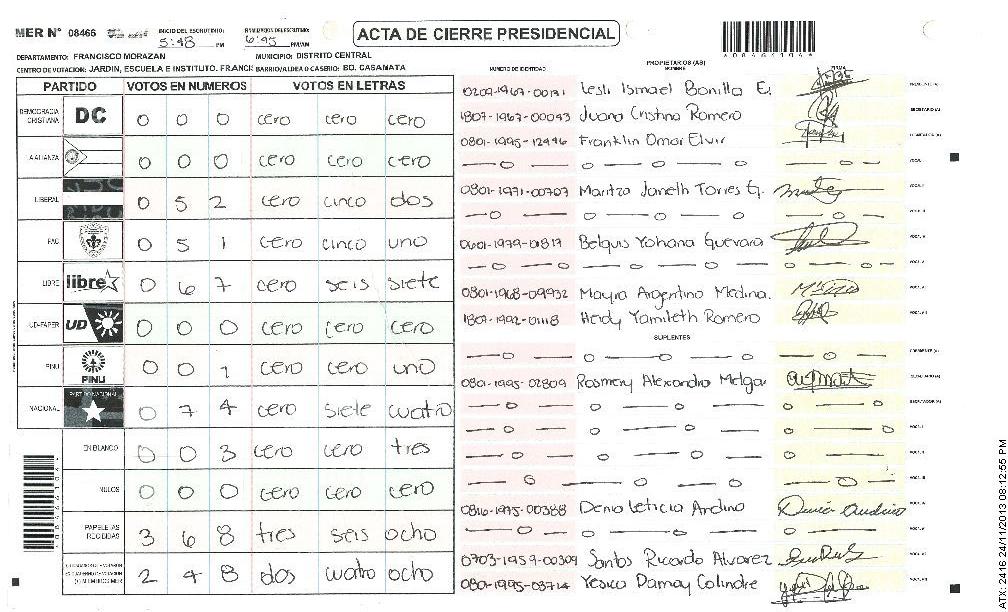 MER N° 08466 INICIO DEL ESCRUTINIO: 5:48 PM FINALIZACION DEL ESCRUTINIO: 6:45 PM/AM
ACTA DE CIERRE PRESIDENCIAL
DEPARTAMENTO: FRANCISCO MORAZAN MUNICIPIO: DISTRITO CENTRAL
CENTRO DE VOTACION: JARDIN, ESCUELA E INSTITUTO. FRANCI BARRIO/ALDEA O CASERIO: BO. CASAMATA
PARTIDO VOTOS EN NUMEROS VOTOS EN LETRAS
DEMOCRACIA CRISTIANA DC 0 0 0 cero cero cero
LA ALIANZA 0 0 0 cero cero cero
LIBERAL 0 5 2 cero cinco dos
PAC 0 5 1 cero cinco uno
LIBRE libre 0 6 7 cero seis siete
UD-FAPER UD 0 0 0 cero cero cero
PINU PINU 0 0 1 cero cero uno
NACIONAL PARTIDO NACIONAL 0 7 4 cero siete cuatro
EN BLANCO 0 0 3 cero cero tres
NULOS 0 0 0 cero cero cero
PAPELETAS RECIBIDAS 3 6 8 tres seis ocho
2 4 8 dos cuatro ocho
NUMERO DE IDENTIDAD PROPIETARIOS (AS) NOMBRE FIRMA
Lesli Ismael Bonilla E. PRESIDENTE (A)
1807-1967-00043 Juana Cristina Romero SECRETARIO (A)
0801-1995-12446 Franklin Omar Elvir ESCRUTADOR (A)
VOCAL I
0801-1971-00707 Maritza Janeth Torres G. VOCAL II
VOCAL III
0601-1979-01817 Belquis Yohana Guevara VOCAL IV
VOCAL V
0801-1968-09932 Mayra Argentina Medina. VOCAL VI
1807-1992-01118 Heidy Yamileth Romero VOCAL VII
SUPLENTES
PRESIDENTE (A)
0801-1995-02809 Rosmery Alexandra Melgar SECRETARIO (A)
ESCRUTADOR (A)
VOCAL I
VOCAL II
VOCAL III
0816-1975-00388 Denia Leticia Andino VOCAL IV
VOCAL V
0703-1959-00309 Santos Ricardo Alvarez VOCAL VI
0801-1995-03714 Yesica Damay Colindre VOCAL VII
ATX-2416 24/11/2013 08:12:55 PM